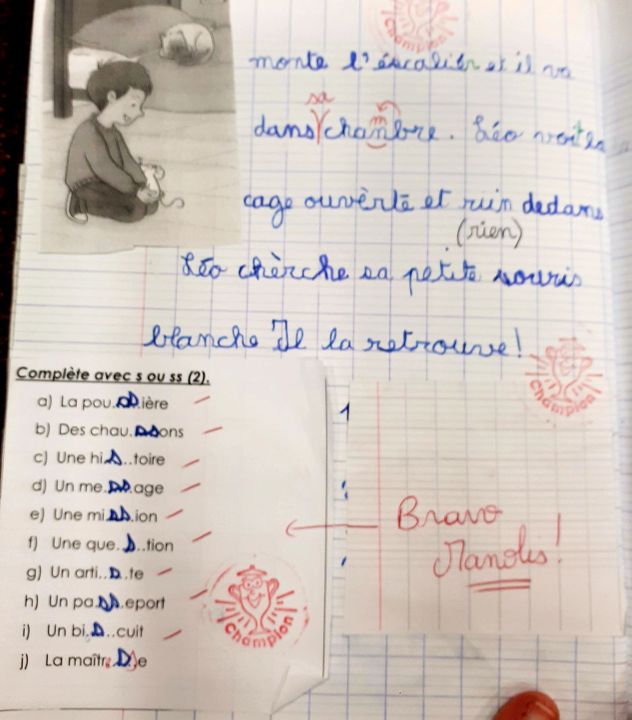 Champion
monte l'éscalier et il va
sa
dans chanbre. Léo voit la
m
cage ouvèrte et ruin dedans
(rien)
Léo chèrche sa petite souris
blanche Il la retrouve!
Champion
Complète avec s ou ss (2).
a) La pou.ss.ière
b) Des chau.ss.ons
c) Une hi.s..toire
d) Un me.ss.age
e) Une mi.ss.ion
f) Une que..s..tion
g) Un arti..s..te
h) Un pa.ss.eport
i) Un bi.s..cuit
j) La maîtr
Bravo
Manolis!
Champion